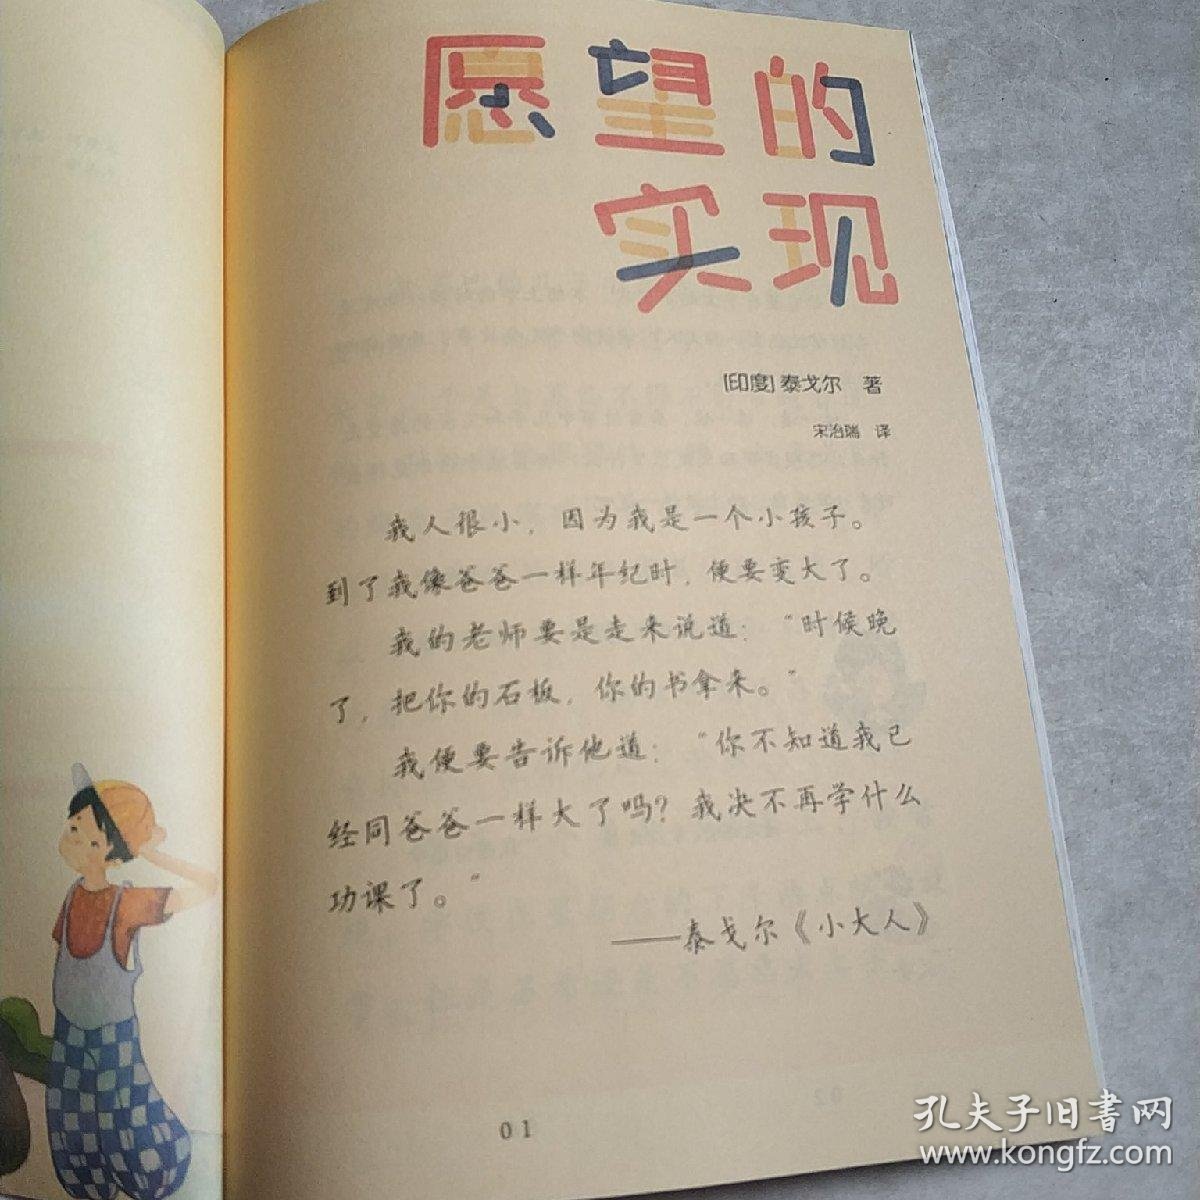 愿望的
实现
[印度]泰戈尔 著
宋诒瑞 译
我人很小，因为我是一个小孩子。
到了我像爸爸一样年纪时，便要变大了。
我的老师要是走来说道：“时候晚
了，把你的石板，你的书拿来。”
我便要告诉他道：“你不知道我已
经同爸爸一样大了吗？我决不再学什么
功课了。”
——泰戈尔《小大人》
01
孔夫子旧书网
www.kongfz.com